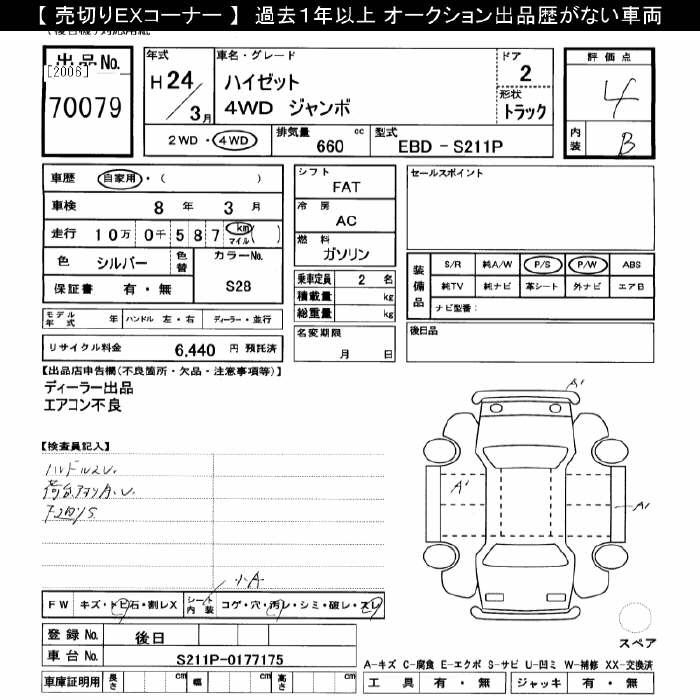 【 売切りEXコーナー 】 過去1年以上 オークション出品歴がない車両
出品No.
[2006]
70079
年式
H24/3月
車名・グレード
ハイゼット
4WD ジャンボ
ドア
2
形状
トラック
2WD・4WD
排気量 660 cc
型式 EBD - S211P
評価点
4
内装 B
車歴 自家用・( )
車検 8年 3月
走行 10万 0千 5 8 7 km マイル ( )
色 シルバー 色替 カラーNo.
保証書 有・無 S28
モデル年式 年 ハンドル 左・右 ディーラー・並行
リサイクル料金 6,440 円 預託済
シフト
FAT
冷房
AC
燃料
ガソリン
乗車定員 2 名
積載量 kg
総重量 kg
名変期限
月 日
セールスポイント
装備品 S/R 純A/W P/S P/W ABS
純TV 純ナビ 革シート 外ナビ エアB
ナビ型番:
後日品
【出品店申告欄(不良箇所・欠品・注意事項等)】
ディーラー出品
エアコン不良
【検査員記入】
ハンドルスレ.
下回りS
小A
FW キズ・トビ石・割レX シート内装 コゲ・穴・汚レ・シミ・破レ・スレ
登録No. 後日
車台No. S211P-0177175
車庫証明用 長さ cm 幅 cm 高さ cm
A'
A'
A'
スペア
A-キズ C-腐食 E-エクボ S-サビ U-凹ミ W-補修 XX-交換済
工具 有・無 ジャッキ 有・無